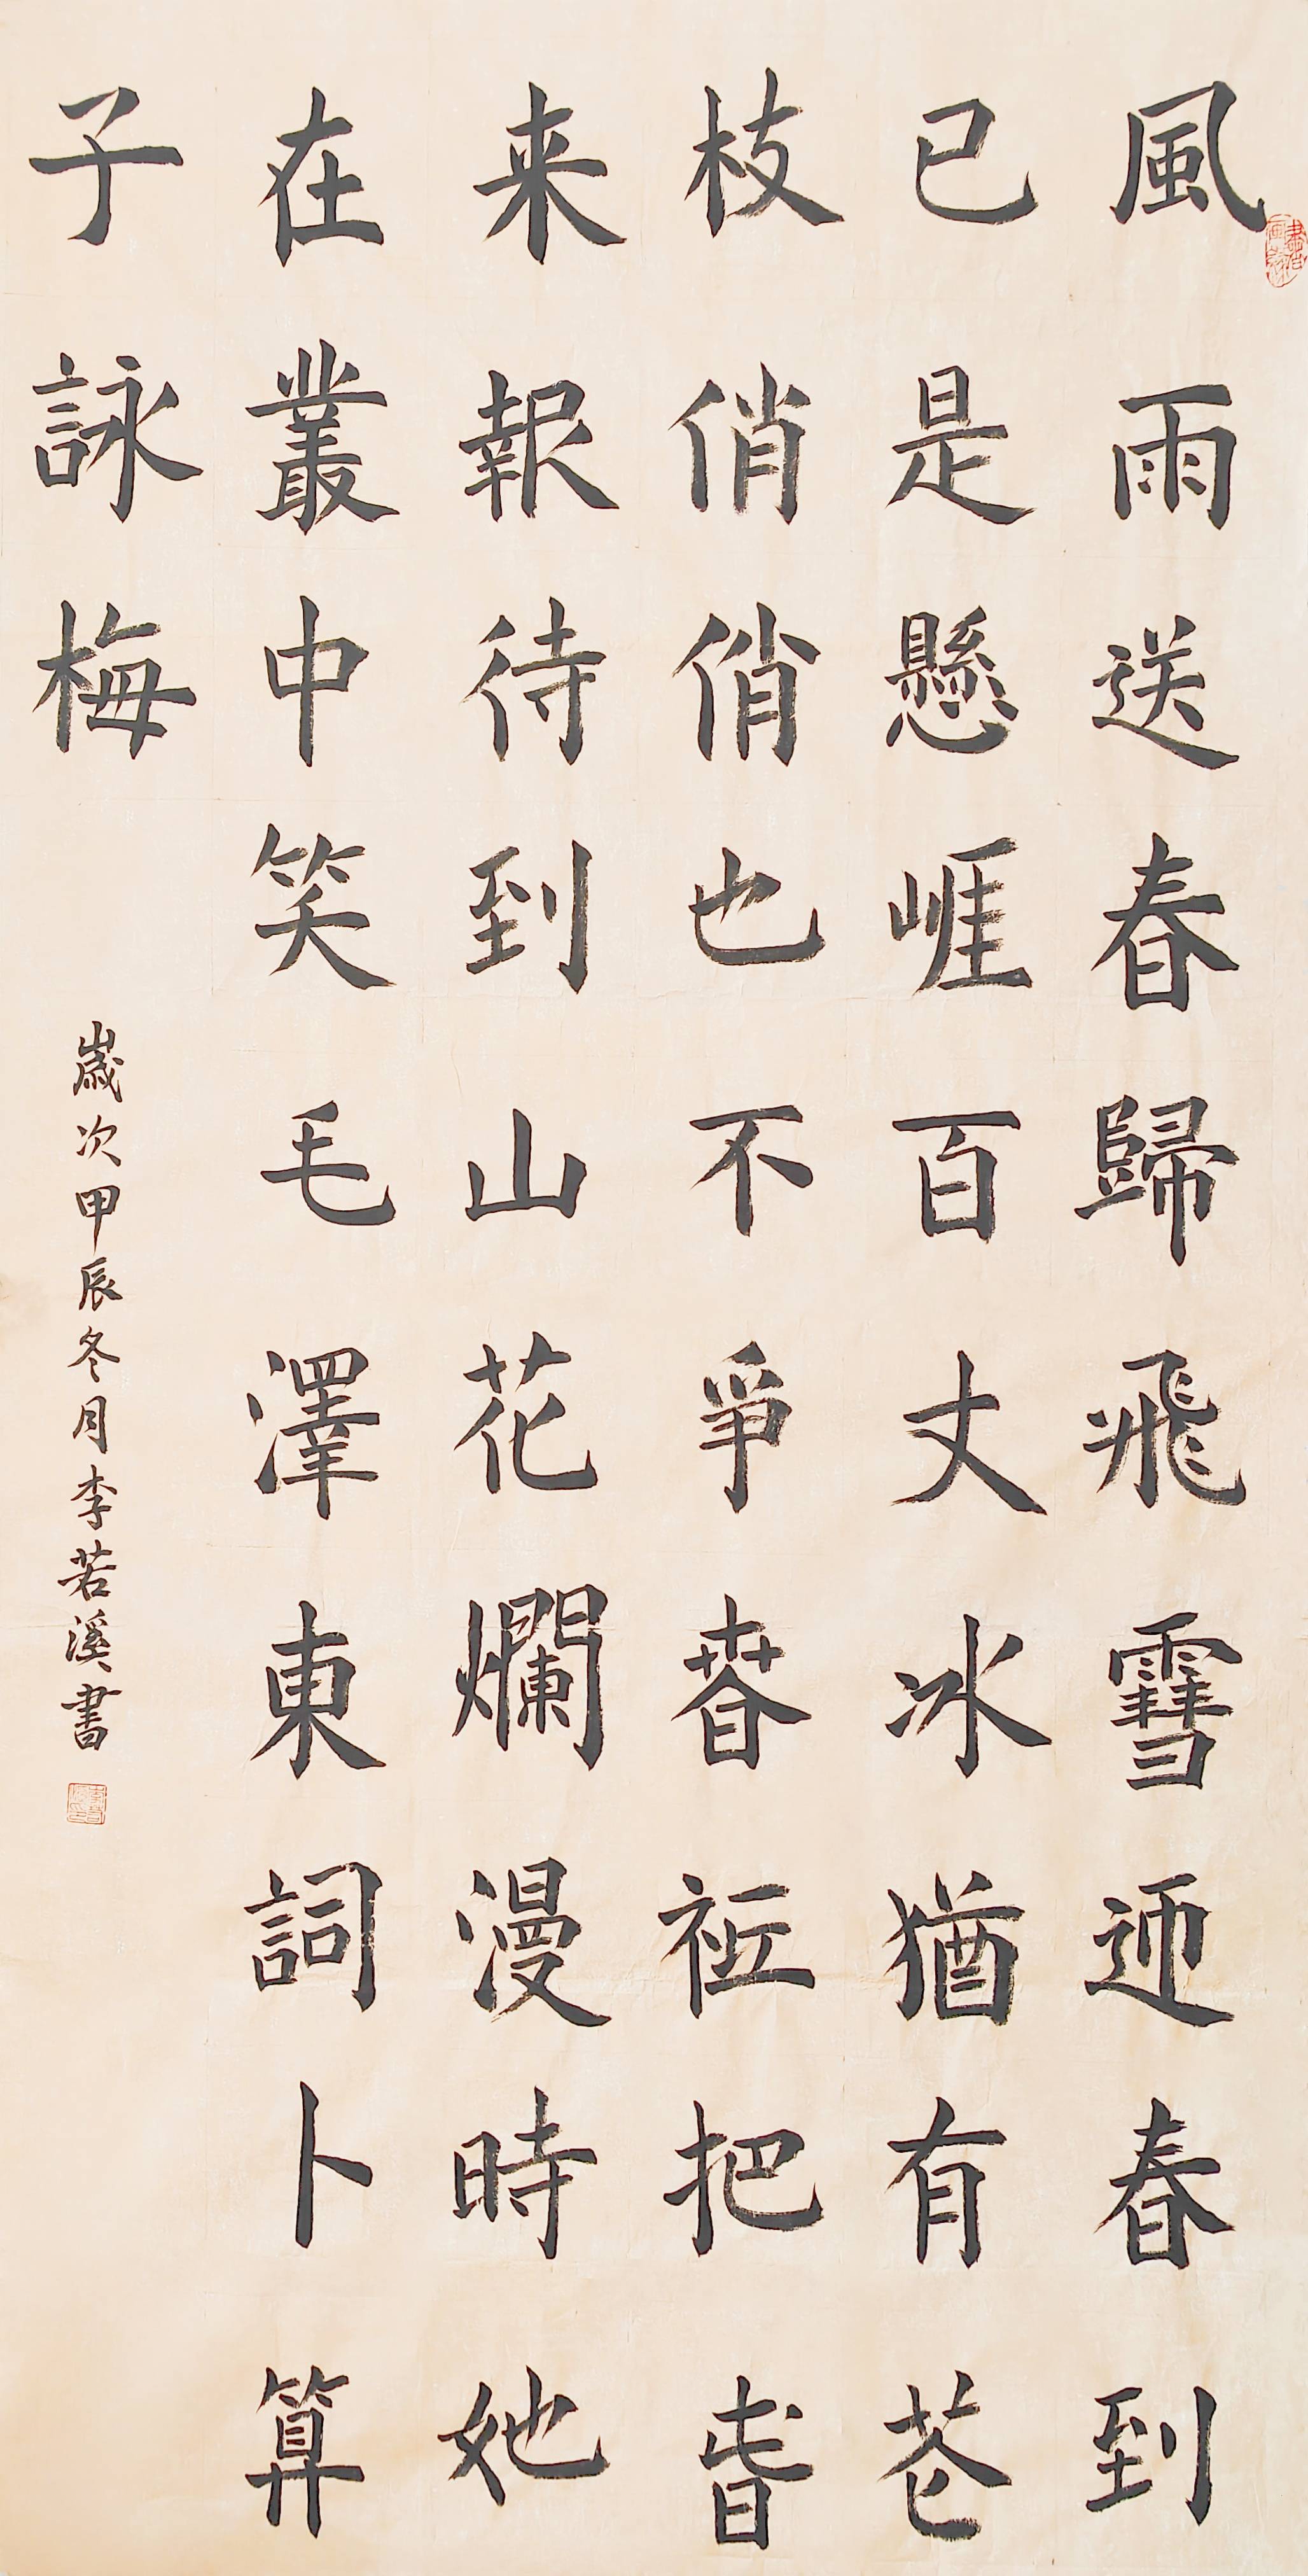 風雨送春歸飛雪迊春到
已是懸崕百丈冰猶有芲
枝俏俏也不爭春祇把旾
来報待到山花爛漫時她
在叢中笑毛澤東詞卜算
子詠梅
歲次甲辰冬月李若溪書